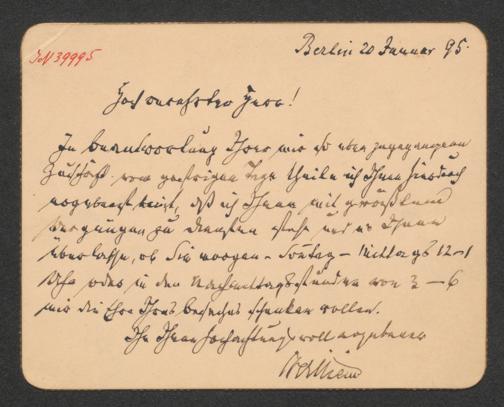 JN 39995
Berlin 20 Januar 95.
Hochverehrter Herr!
In Beantwortung Ihrer mir so eben zugegangenen
Zuschrift vom gestrigen Tage theile ich Ihnen hierdurch
ergebenst mit, daß ich Ihnen mit größtem
Vergnügen zu Diensten stehe und es Ihnen
überlasse, ob Sie morgen - Sonntag - Mittags 12-1
Uhr oder in den Nachmittagsstunden von 3 - 6
mir die Ehre Ihres Besuches schenken wollen.
Ihr Ihnen hochachtungsvoll ergebener